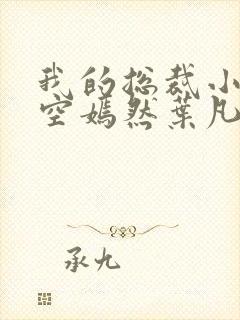 我的总裁小
空嫣然叶凡
承九